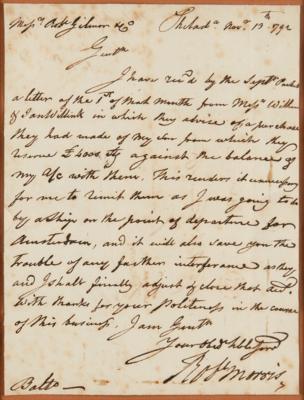 Mess.rs Rob.t Gilmor & Co Philad.a Nov.r 13th 1792
Gent.n
I have rec'd by the Sep.r Packet
a letter of the 1st of that month from Mess.rs Wilhem
& Jan Willink in which they advise of a purchase
they had made of my from which they
reserve against the balance of
my A/c with them. This renders it unnecessary
for me to remit them as I was going to do
by a Ship on the point of departure for
Amsterdam, and it will also save you the
trouble of any further interferance as they
and I shall finally adjust & close that acc.t
With thanks for your Politeness in the course
of this business. I am Gent.n
Your Obed. hble Serv.
Rob.t Morris
Balto